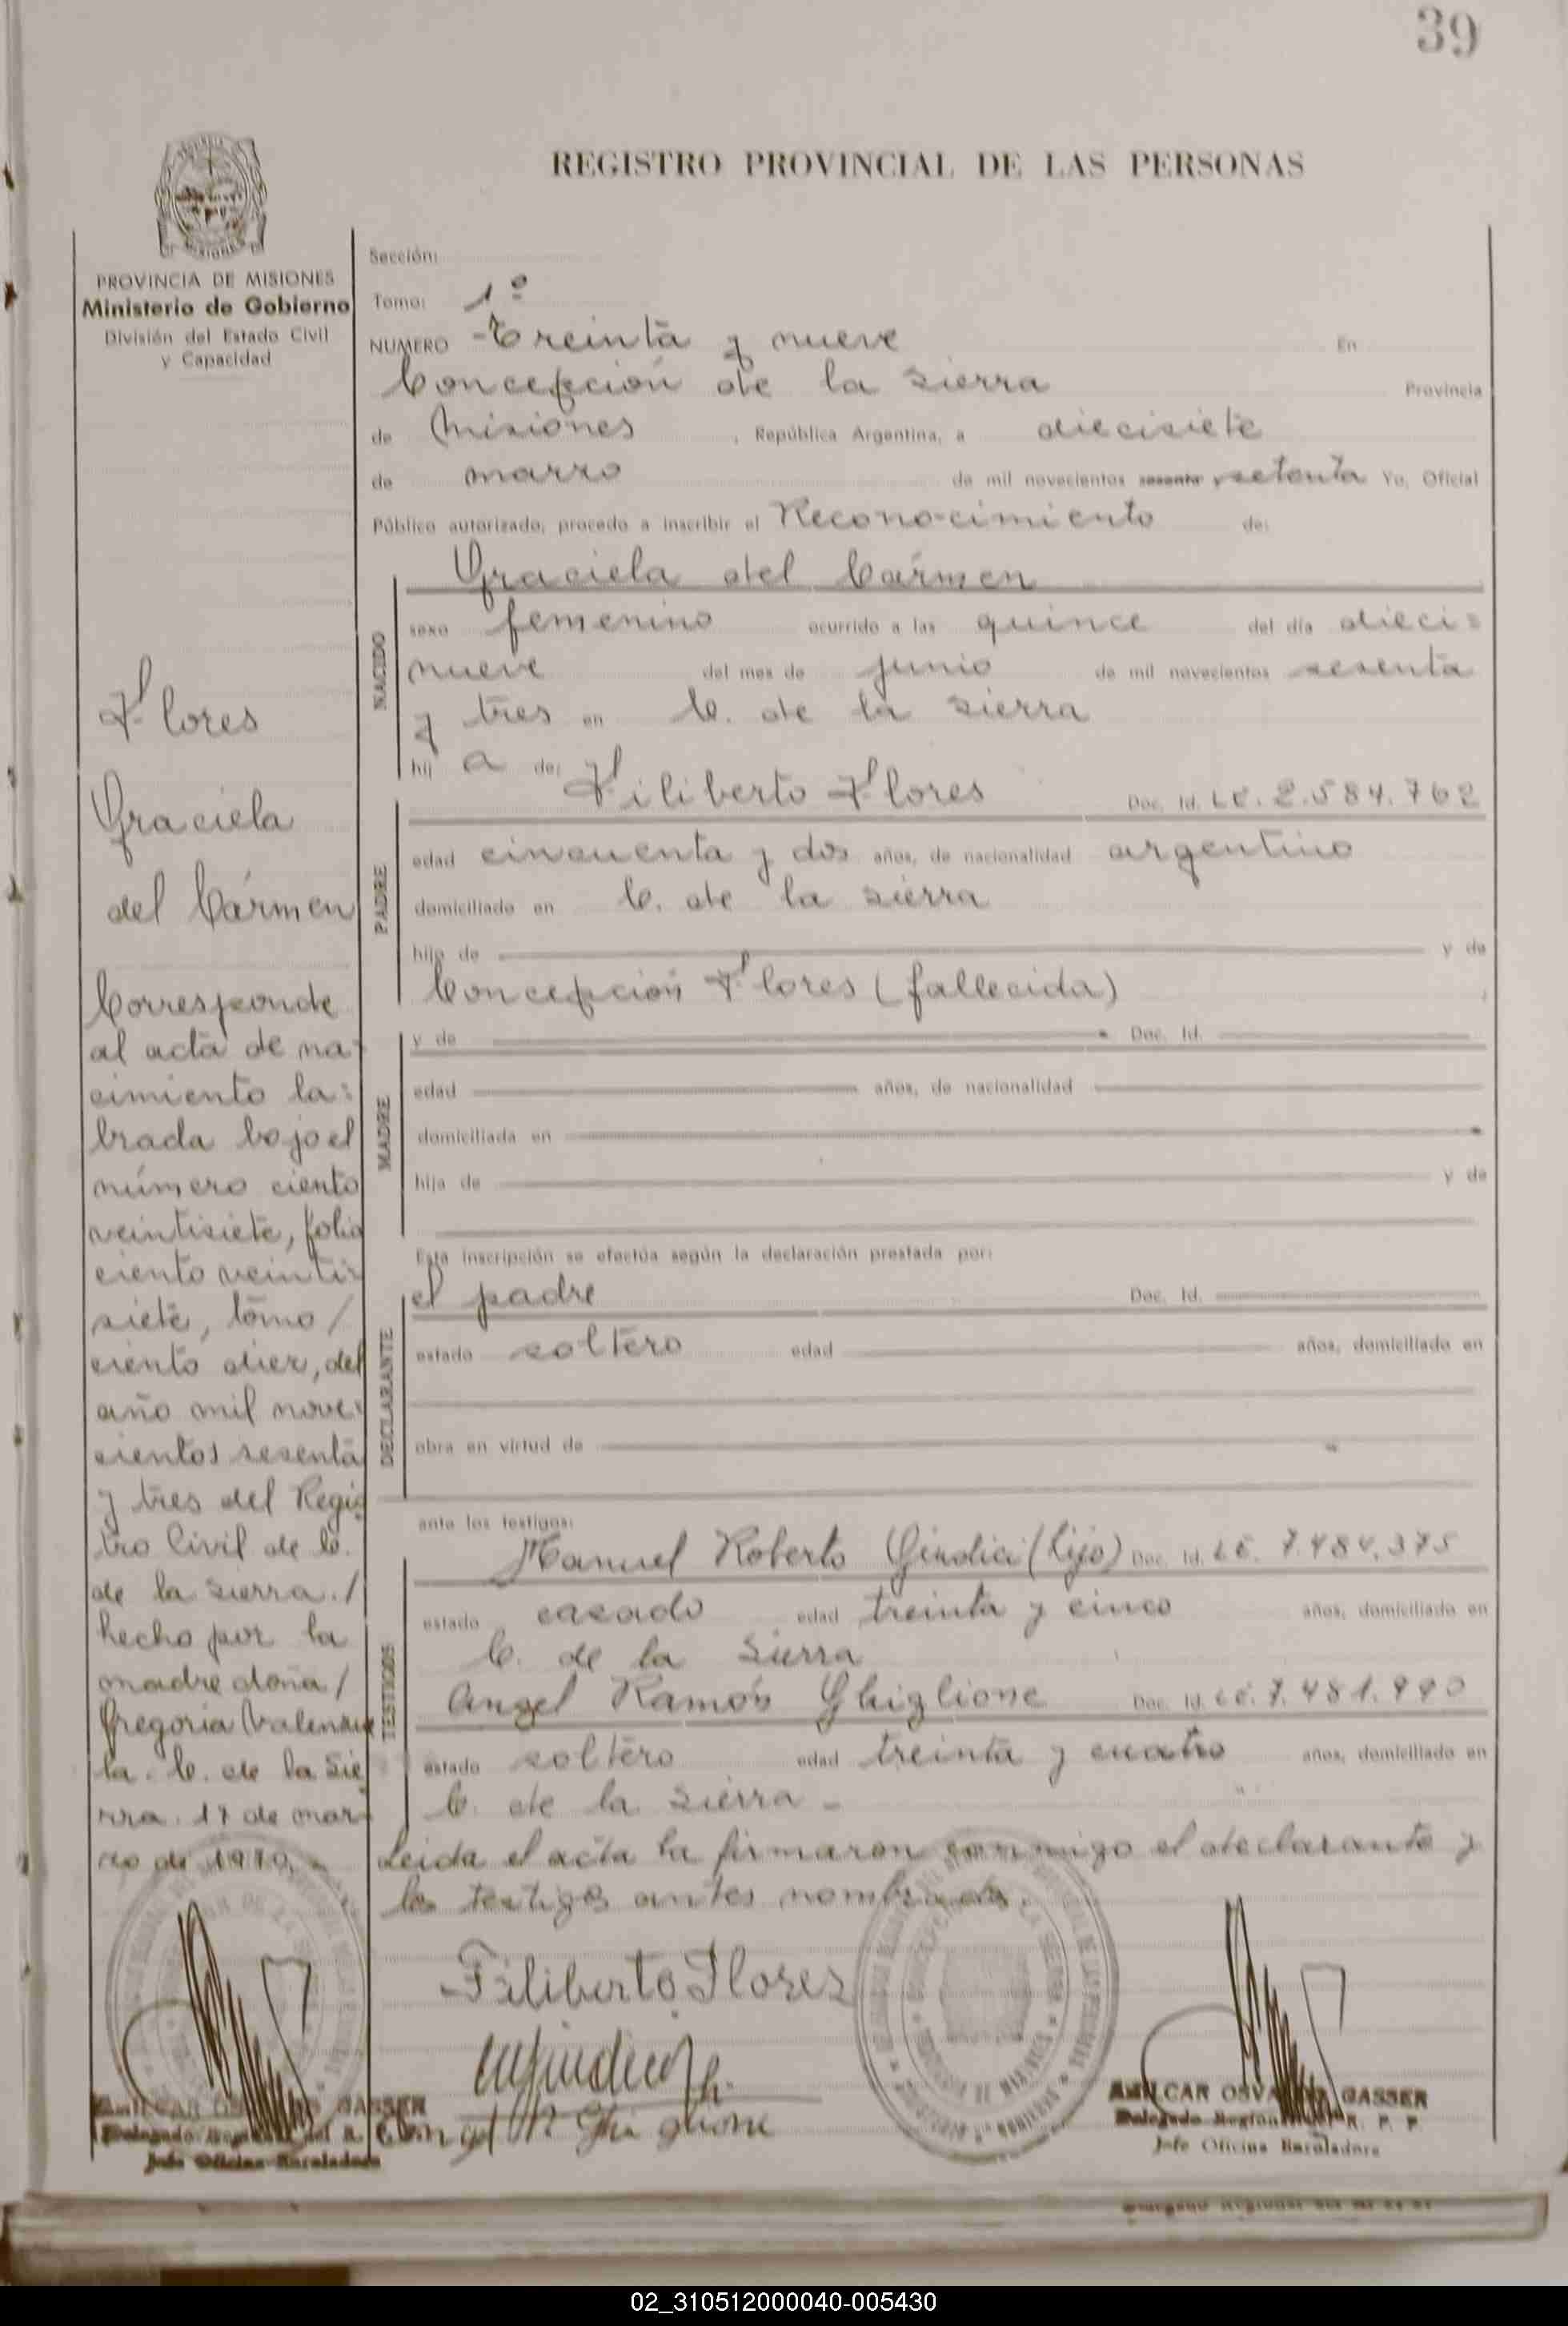 39
REGISTRO PROVINCIAL DE LAS PERSONAS
PROVINCIA DE MISIONES
Ministerio de Gobierno
División del Estado Civil
y Capacidad
Flores
Graciela
del Cármen
Corresponde
al acta de na-
cimiento la-
brada bajo el
número ciento
veintisiete, folio
ciento veinti-
siete, tomo /
ciento diez, del
año mil nove-
cientos sesenta
y tres del Regis
tro Civil de C.
de la Sierra. /
hecho por la
madre doña /
Gregoria Valenzue
la. C. de la Sie
rra. 17 de mar-
zo de 1970.
Sección:
Tomo: 1º
NUMERO Treinta y nueve En
Concepción de la Sierra Provincia
de Misiones, República Argentina, a diecisiete
de marzo de mil novecientos sesenta y setenta Yo, Oficial
Público autorizado, procedo a inscribir el Reconocimiento de:
NACIDO
Graciela del Cármen
sexo femenino ocurrido a las quince del día dieci=
nueve del mes de junio de mil novecientos sesenta
y tres en C. de la Sierra
hij a de:
PADRE
Filiberto Flores Doc. Id. LE. 2.584.762
edad cincuenta y dos años, de nacionalidad argentino
domiciliado en C. de la Sierra
hijo de y de
Concepción Flores (fallecida)
MADRE
y de Doc. Id.
edad años, de nacionalidad
domiciliada en
hija de y de
Esta inscripción se efectúa según la declaración prestada por:
DECLARANTE
el padre Doc. Id.
estado soltero edad años, domiciliado en
obra en virtud de
ante los testigos:
TESTIGOS
Manuel Roberto (hijo) Doc. Id. LE. 7.484.375
estado casado edad treinta y cinco años, domiciliado en
C. de la Sierra
Angel Ramón Ghiglione Doc. Id. LE. 7.481.990
estado soltero edad treinta y cuatro años, domiciliado en
C. de la Sierra -
Leida el acta la firmaron conmigo el declarante y
los testigos antes nombrados.
Filiberto Flores
Angel R Ghiglione
AMILCAR OSVALDO GASSER
Delegado Regional del R. P. P.
Jefe Oficina Enroladora
AMILCAR OSVALDO GASSER
Delegado Regional del R.
Jefe Oficina Enroladora
02_310512000040-005430